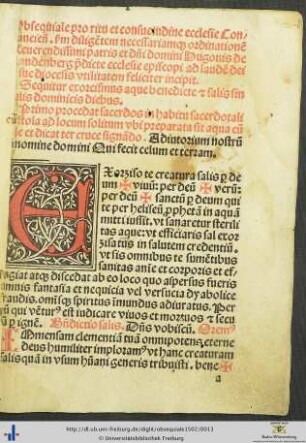 Obsequiale pro ritu et consuetudine ecclesie Con
ancien̄. ſm diligētem necessariamq̃ ordinationē
Reuerendissimi patris et dn̄i domini Hugonis de
andenberg p̄dicte ecclesie episcopi ad laudē dei
sue diocesis vtilitatem feliciter incipit.
Sequitur exorcismus aque benedicte & salis sin
lis dominicis diebus.
Primo procedat sacerdos in habitu sacerdotali
tola ad locum solitum vbi preparata sit aqua cū
le et dicat ter cruce signādo. Adiutorium nostrū
nomine domini Qui fecit celum et terram.
Exorziso te creatura salis p de
um ✠ viuū: per deū ✠ verū:
per deū ✠ sanctū p deum qui
te per heliseū, pphetā in aquā
mitti iussit. vt sanaretur sterili
tas aque: vt efficiaris sal exor
zisatus in salutem credentiū.
vt sis omnibus te sumētibus
sanitas anīe et corporis et ef
fugiat atq̃ discedat ab eo loco quo aspersus fueris
omnis fantasia et nequicia vel versucia dyabolice
fraudis. omīsq̃ spiritus imundus adiuratus. Per
qui vētur9 est iudicare viuos et mortuos & secu
p ignē. Bn̄dictio salis. Dn̄s vobiscū. Orem9
Immensam clementiā tuā omnipotēs, eterne
deus humiliter imploram9 vt hanc creaturam
salis quā in vsum hūani generis tribuisti. bene ✠
a
http://dl.ub.uni-freiburg.de/diglit/obsequiale1502/0013
© Universitätsbibliothek Freiburg